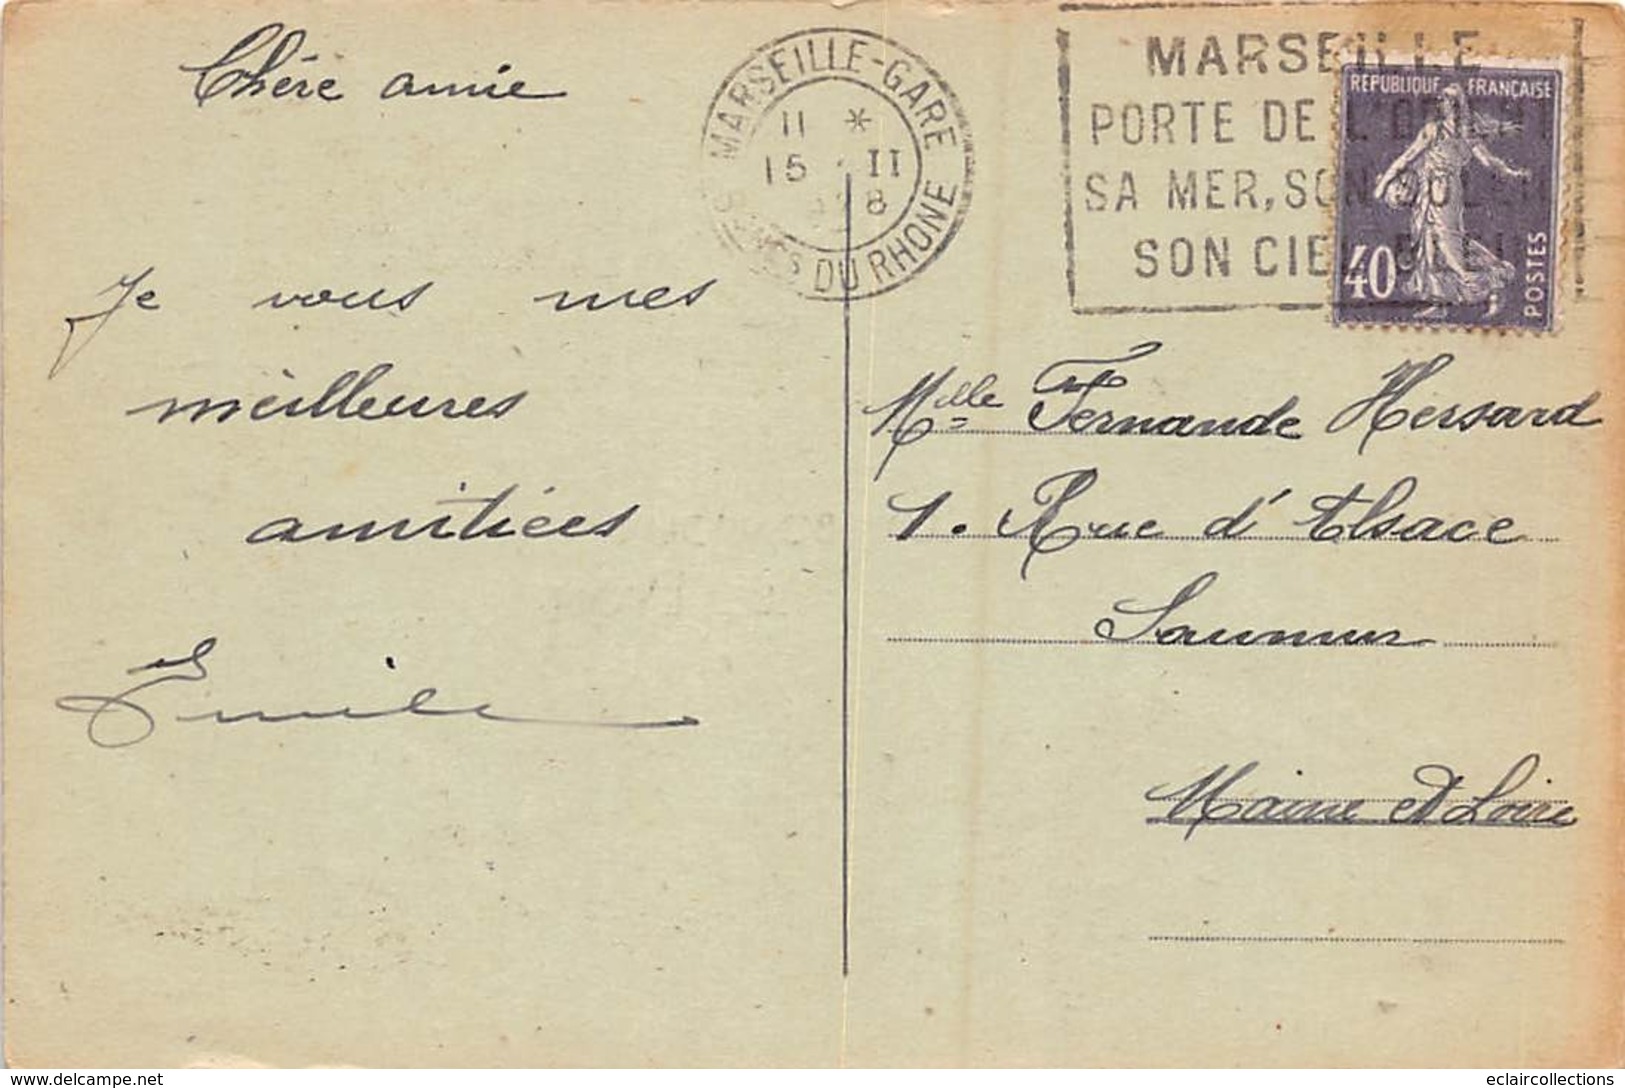 Chére amie
Je vous mes
meilleures
amitiées
Emile
MARSEILLE-GARE
11 *
15 II
28
BCHES DU RHONE
MARSEILLE
PORTE DE L'ORIENT
SA MER, SON SOLEIL
SON CIEL BLEU
REPUBLIQUE FRANÇAISE
40
POSTES
Melle Fernande Hersard
1. Rue d'Alsace
Saumur
Maine et Loire
www.delcampe.net
eclaircollections